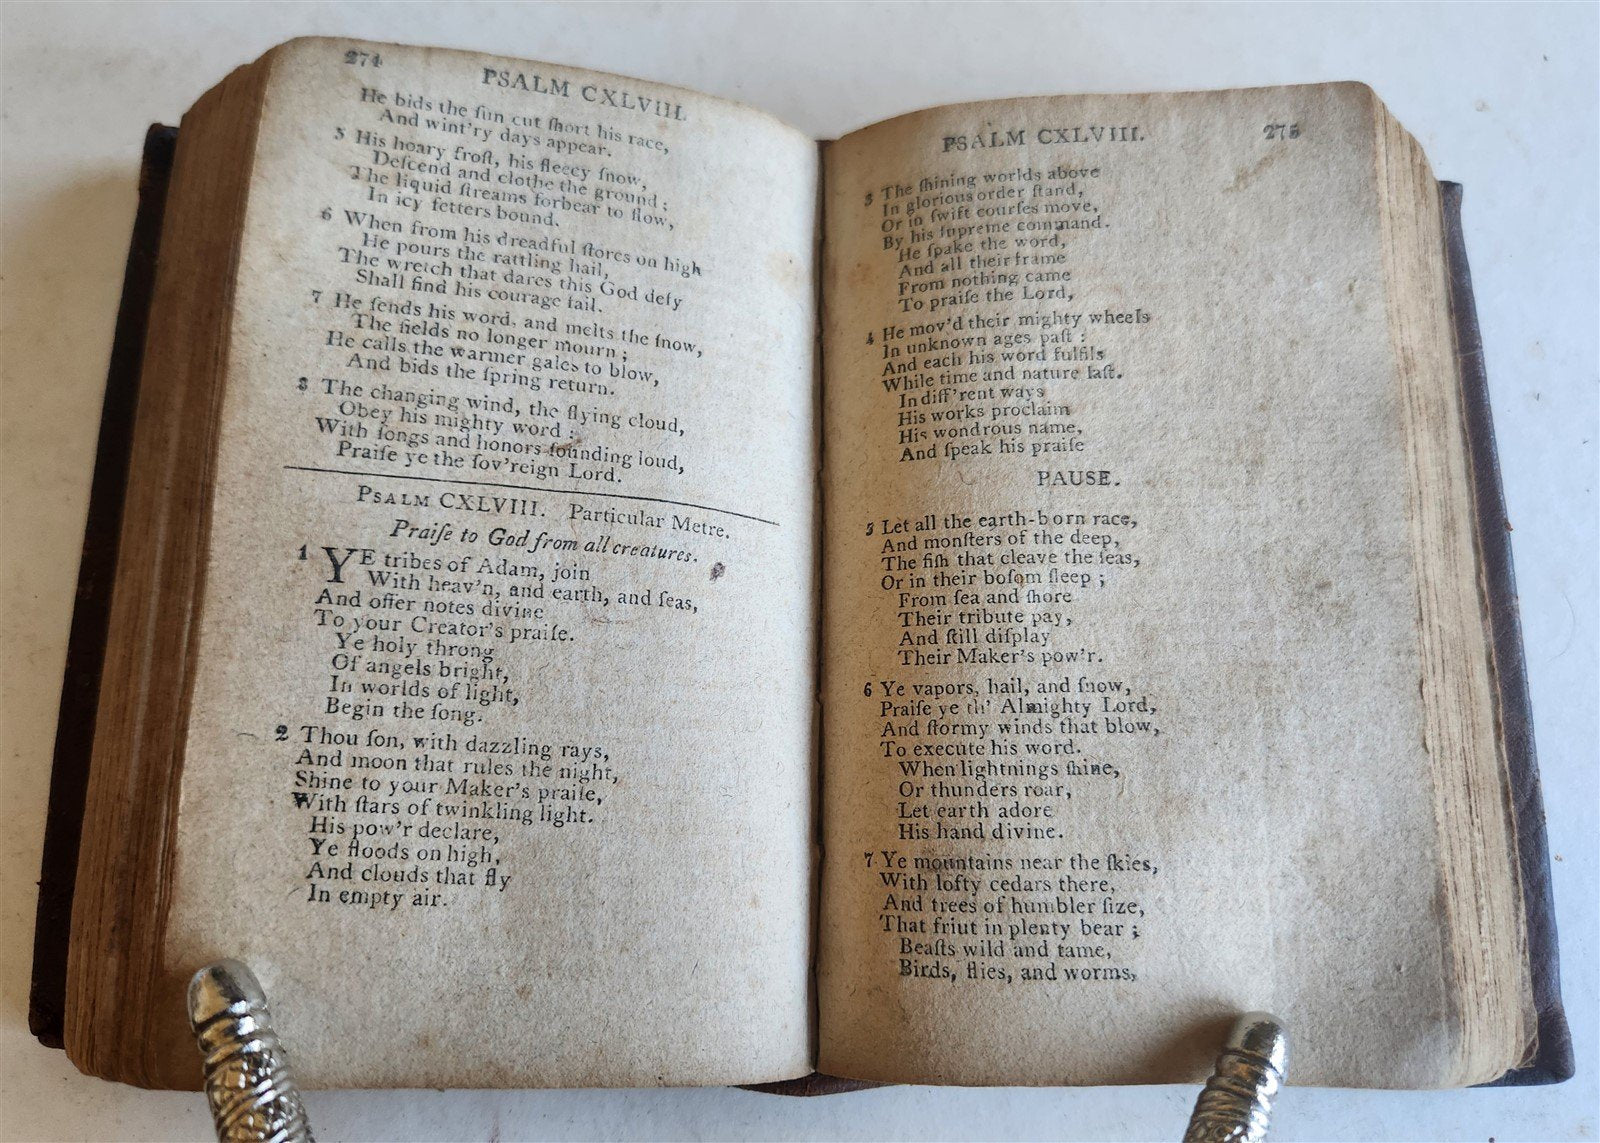 274
PSALM CXLVIII.
He bids the ſun cut ſhort his race,
And wint'ry days appear.
5 His hoary froſt, his fleecy ſnow,
Deſcend and clothe the ground;
The liquid ſtreams forbear to flow,
In icy fetters bound.
6 When from his dreadful ſtores on high
He pours the rattling hail,
The wretch that dares this God defy
Shall find his courage fail.
7 He ſends his word, and melts the ſnow,
The fields no longer mourn;
He calls the warmer gales to blow,
And bids the ſpring return.
8 The changing wind, the flying cloud,
Obey his mighty word:
With ſongs and honors ſounding loud,
Praiſe ye the ſov'reign Lord.
PSALM CXLVIII. Particular Metre.
Praiſe to God from all creatures.
1 YE tribes of Adam, join
With heav'n, and earth, and ſeas,
And offer notes divine
To your Creator's praiſe.
Ye holy throng
Of angels bright,
In worlds of light,
Begin the ſong.
2 Thou ſon, with dazzling rays,
And moon that rules the night,
Shine to your Maker's praiſe,
With ſtars of twinkling light.
His pow'r declare,
Ye floods on high,
And clouds that fly
In empty air.
PSALM CXLVIII. 275
3 The ſhining worlds above
In glorious order ſtand,
Or in ſwift courſes move,
By his ſupreme command.
He ſpake the word,
And all their frame
From nothing came
To praiſe the Lord,
4 He mov'd their mighty wheels
In unknown ages paſt:
And each his word fulfils
While time and nature laſt.
In diff'rent ways
His works proclaim
His wondrous name,
And ſpeak his praiſe
PAUSE.
5 Let all the earth-born race,
And monſters of the deep,
The fiſh that cleave the ſeas,
Or in their boſom ſleep;
From ſea and ſhore
Their tribute pay,
And ſtill diſplay
Their Maker's pow'r.
6 Ye vapors, hail, and ſnow,
Praiſe ye th' Almighty Lord,
And ſtormy winds that blow,
To execute his word.
When lightnings ſhine,
Or thunders roar,
Let earth adore
His hand divine.
7 Ye mountains near the ſkies,
With lofty cedars there,
And trees of humbler ſize,
That friut in plenty bear;
Beaſts wild and tame,
Birds, flies, and worms,